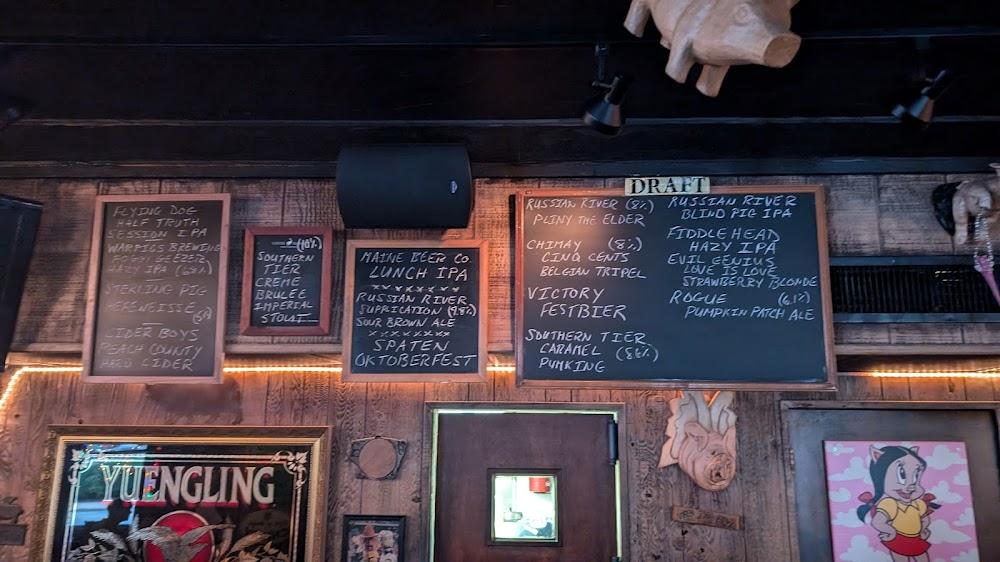 FLYING DOG
HALF TRUTH
SESSION IPA
WARPIGS BREWING
FOGGY GEEZER
HAZY IPA (6.8%)
STERLING PIG
HEFEWEISSE
CIDER BOYS
PEACH COUNTY
HARD CIDER
(10%)
SOUTHERN
TIER
CREME
BRULEE
IMPERIAL
STOUT
MAINE BEER CO.
LUNCH IPA
xxxxxxx
RUSSIAN RIVER
SUPPLICATION (9.8%)
SOUR BROWN ALE
xxxxxxx
SPATEN
OKTOBERFEST
DRAFT
RUSSIAN RIVER (8%)
PLINY THE ELDER
CHIMAY (8%)
CINQ CENTS
BELGIAN TRIPEL
VICTORY
FESTBIER
SOUTHERN TIER
CARAMEL (8.6%)
PUMKING
RUSSIAN RIVER
BLIND PIG IPA
FIDDLEHEAD
HAZY IPA
EVIL GENIUS
LOVE IS LOVE
STRAWBERRY BLONDE
ROGUE (6.1%)
PUMPKIN PATCH ALE
YUENGLING